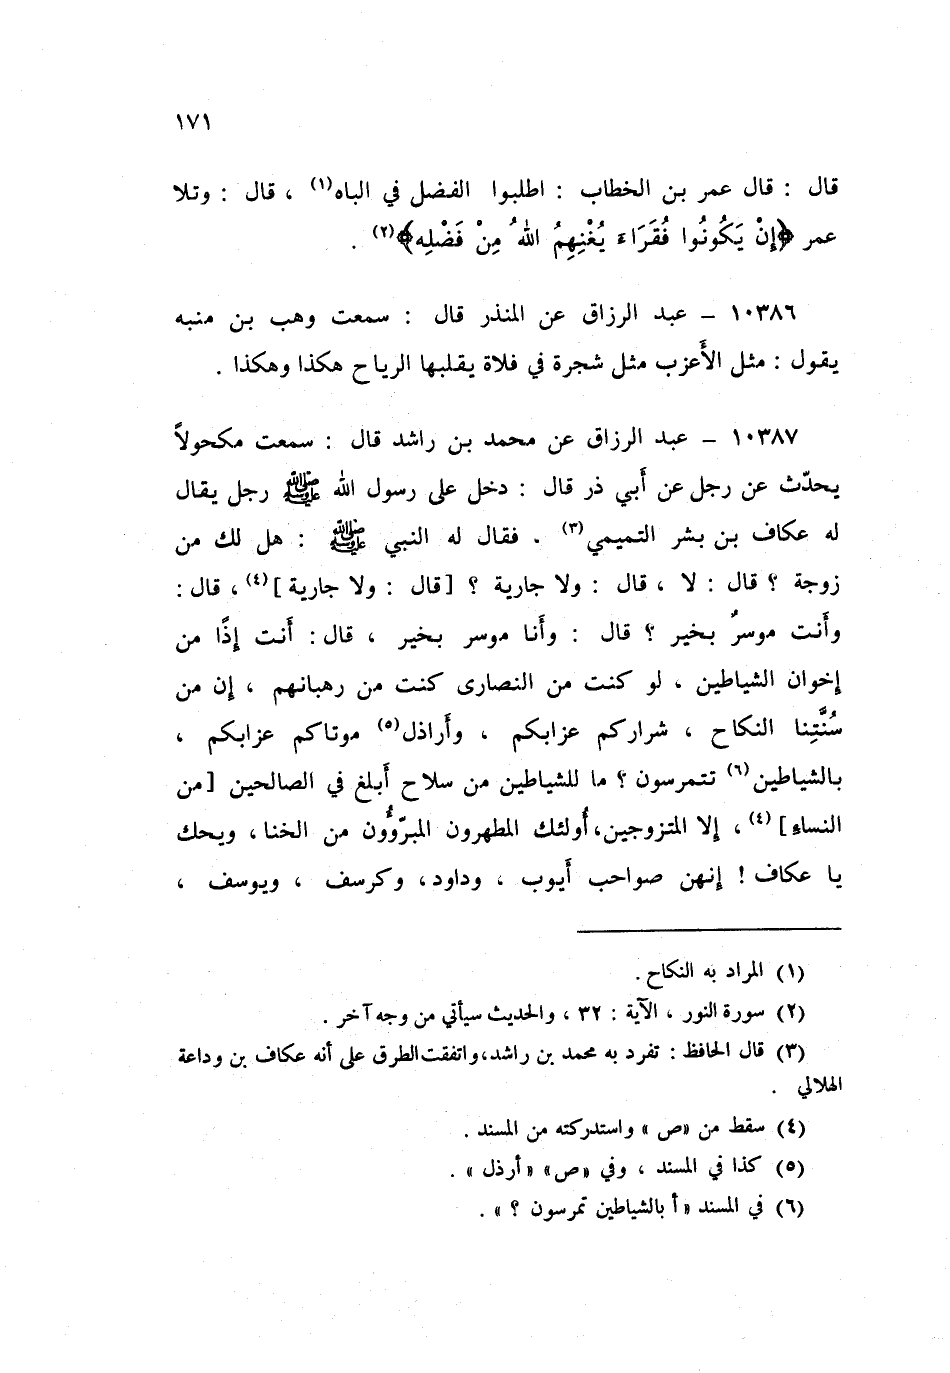 ١٧١
قال : قال عمر بن الخطاب : اطلبوا الفضل في الباه(١) ، قال : وتلا
عمر ﴿إِنْ يَكُونُوا فُقَرَاءَ يُغْنِهِمُ اللهُ مِنْ فَضْلِهِ﴾(٢) .
١٠٣٨٦ – عبد الرزاق عن المنذر قال : سمعت وهب بن منبه
يقول : مثل الأَعزب مثل شجرة في فلاة يقلبها الرياح هكذا وهكذا .
١٠٣٨٧ – عبد الرزاق عن محمد بن راشد قال : سمعت مكحولاً
يحدّث عن رجل عن أَبي ذر قال : دخل على رسول الله ﷺ رجل يقال
له عكاف بن بشر التميمي(٣) . فقال له النبي ﷺ : هل لك من
زوجة ؟ قال : لا ، قال : ولا جارية ؟ [قال : ولا جارية ](٤) ، قال :
وأَنت موسرٌ بخير ؟ قال : وأَنا موسر بخير ، قال : أَنت إِذًا من
إِخوان الشياطين ، لو كنت من النصارى كنت من رهبانهم ، إِن من
سُنَّتِنا النكاح ، شراركم عزابكم ، وأَراذل(٥) موتاكم عزابكم ،
بالشياطين(٦) تتمرسون ؟ ما للشياطين من سلاح أَبلغ في الصالحين [من
النساء](٤) ، إلا المتزوجين، أُولئك المطهرون المبرّؤُون من الخنا ، ويحك
يا عكاف ! إِنهن صواحب أَيوب ، وداود، وكرسف ، ويوسف ،
(١) المراد به النكاح .
(٢) سورة النور ، الآية : ٣٢ ، والحديث سيأتي من وجه آخر .
(٣) قال الحافظ : تفرد به محمد بن راشد، واتفقت الطرق على أنه عكاف بن وداعة
الهلالي .
(٤) سقط من «ص» واستدركته من المسند .
(٥) كذا في المسند ، وفي «ص» «أرذل» .
(٦) في المسند «أ بالشياطين تمرسون ؟» .